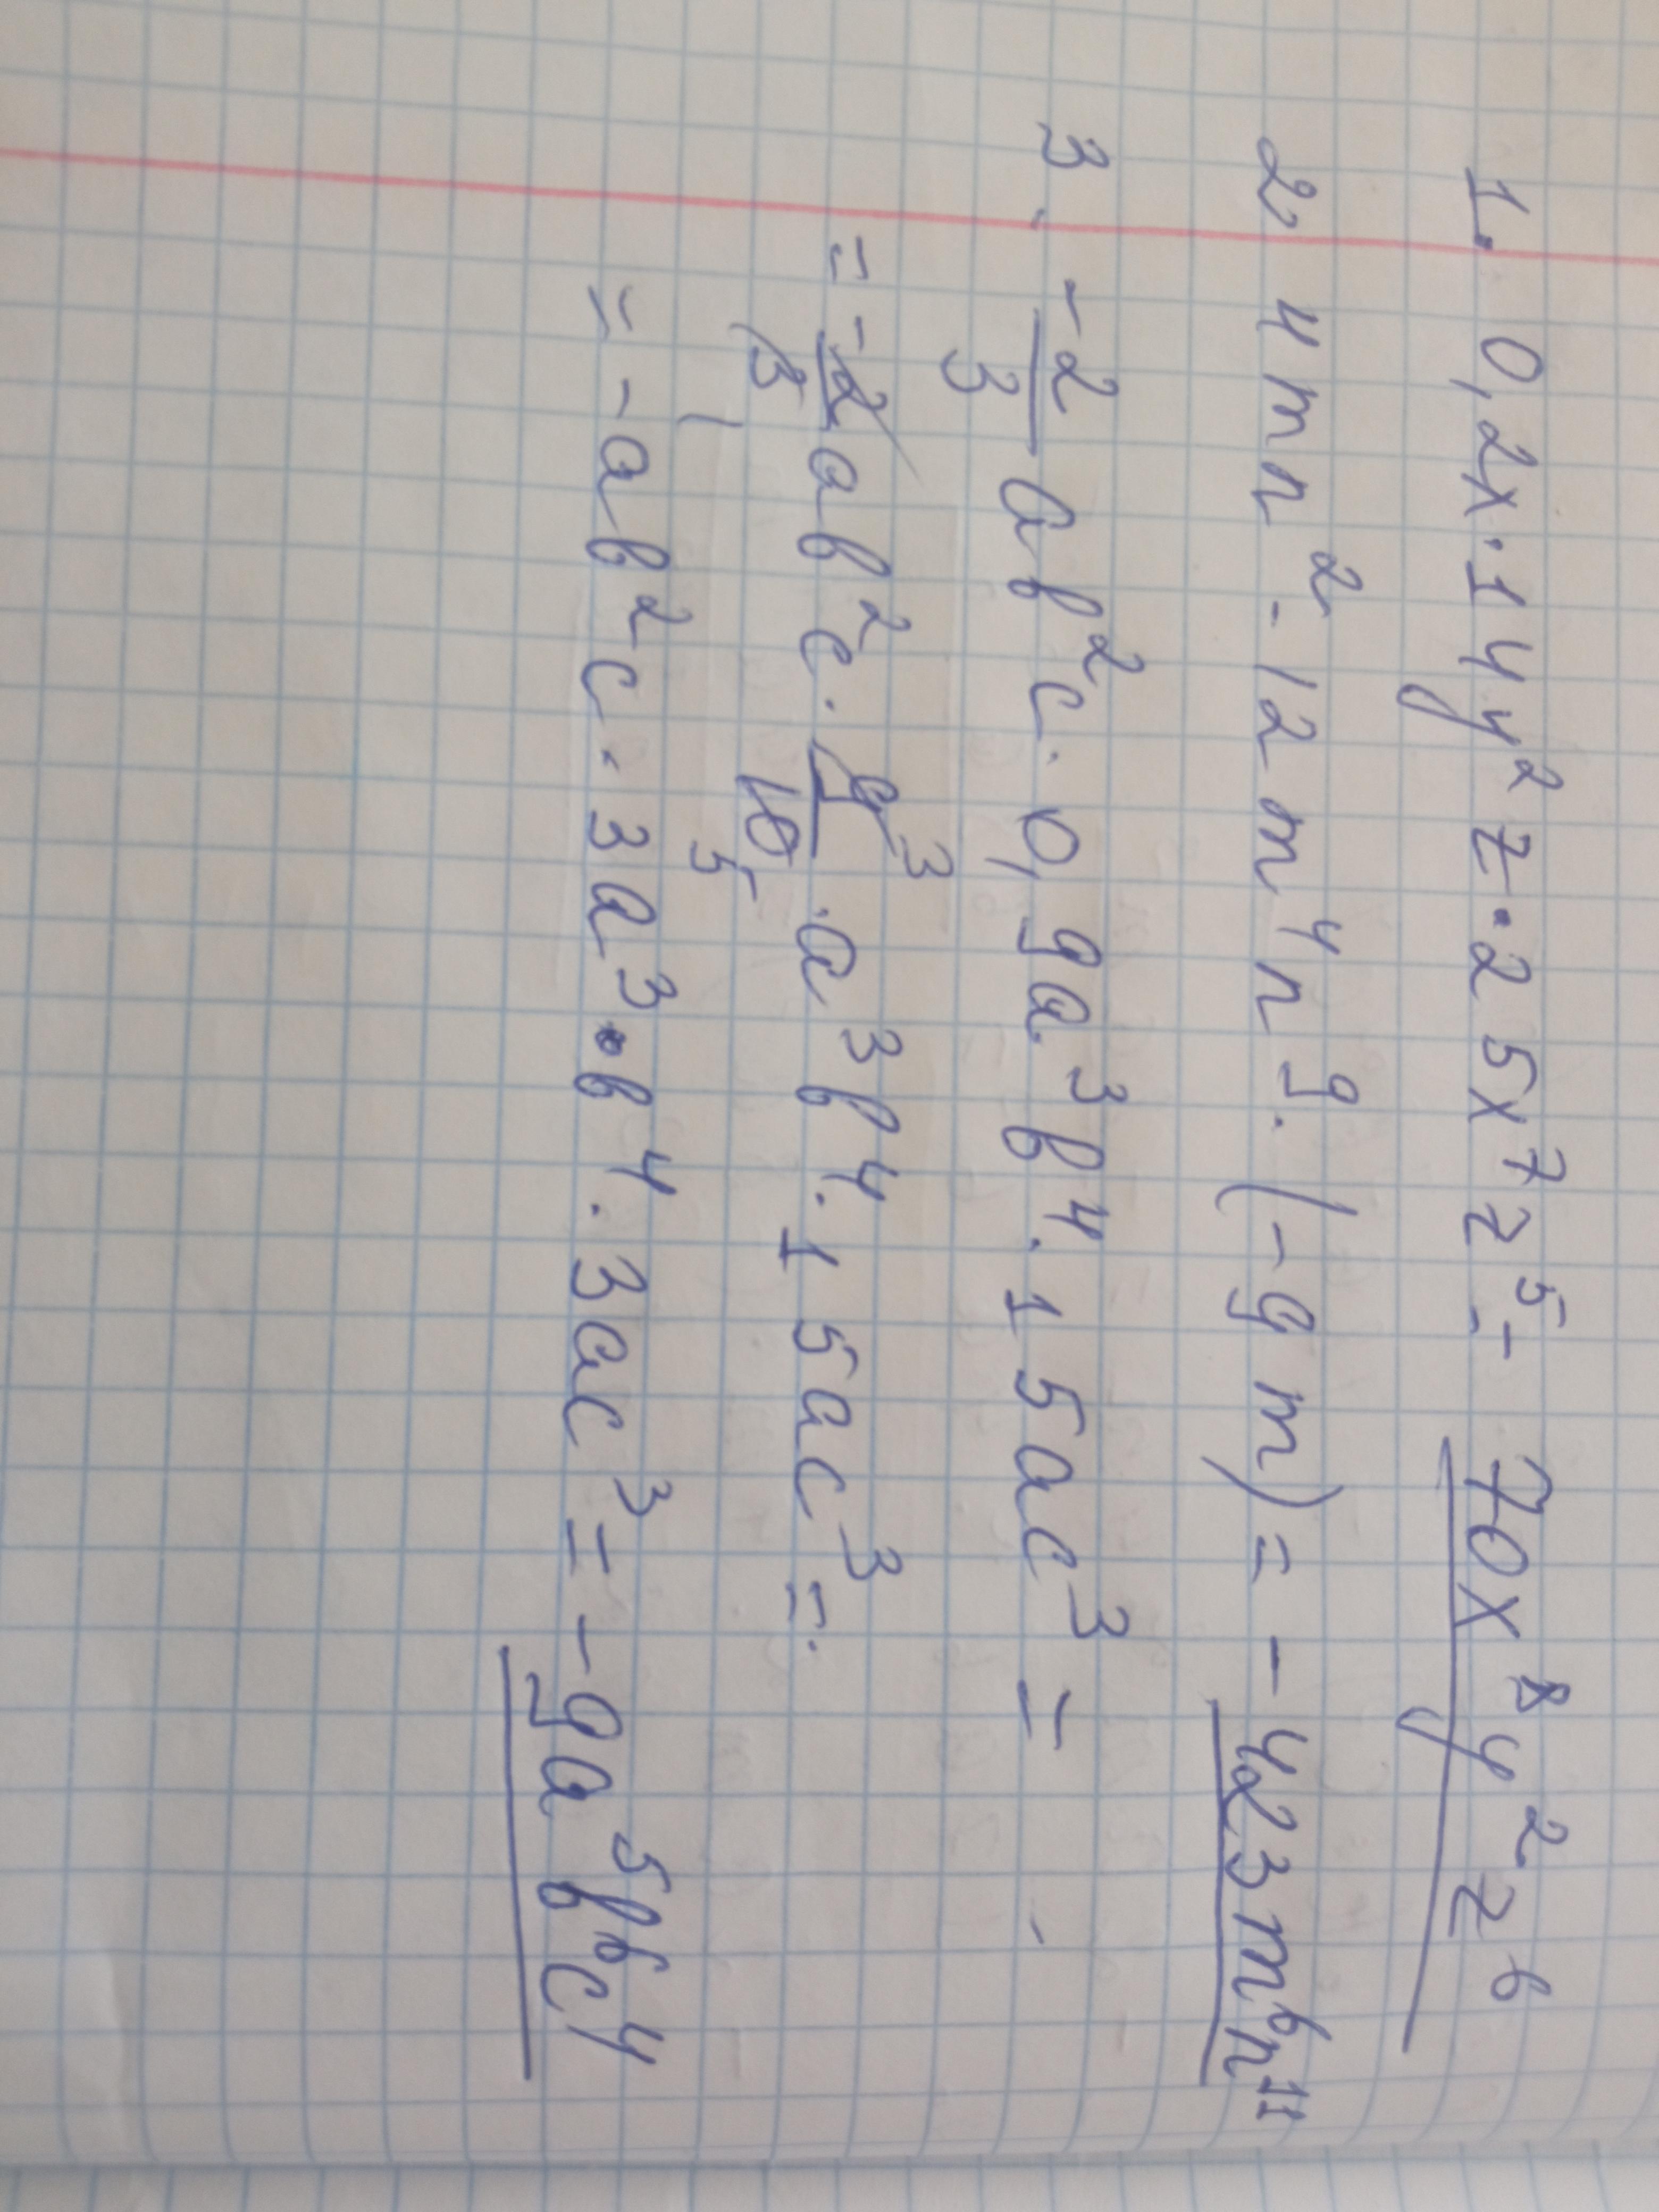 1. 0,2x·14y²z·25x⁷z⁵= 70x⁸y²z⁶
2. 4mn²·12m⁴n⁹·(-9m)= -423m⁶n¹¹
3. -2/3 ab²c·0,9a³b⁴·15ac³=
= -2/3 ab²c·9/10 ·a³b⁴·15ac³=
1 5 3
= -ab²c·3a³·b⁴·3ac³= -9a⁵b⁶c⁴